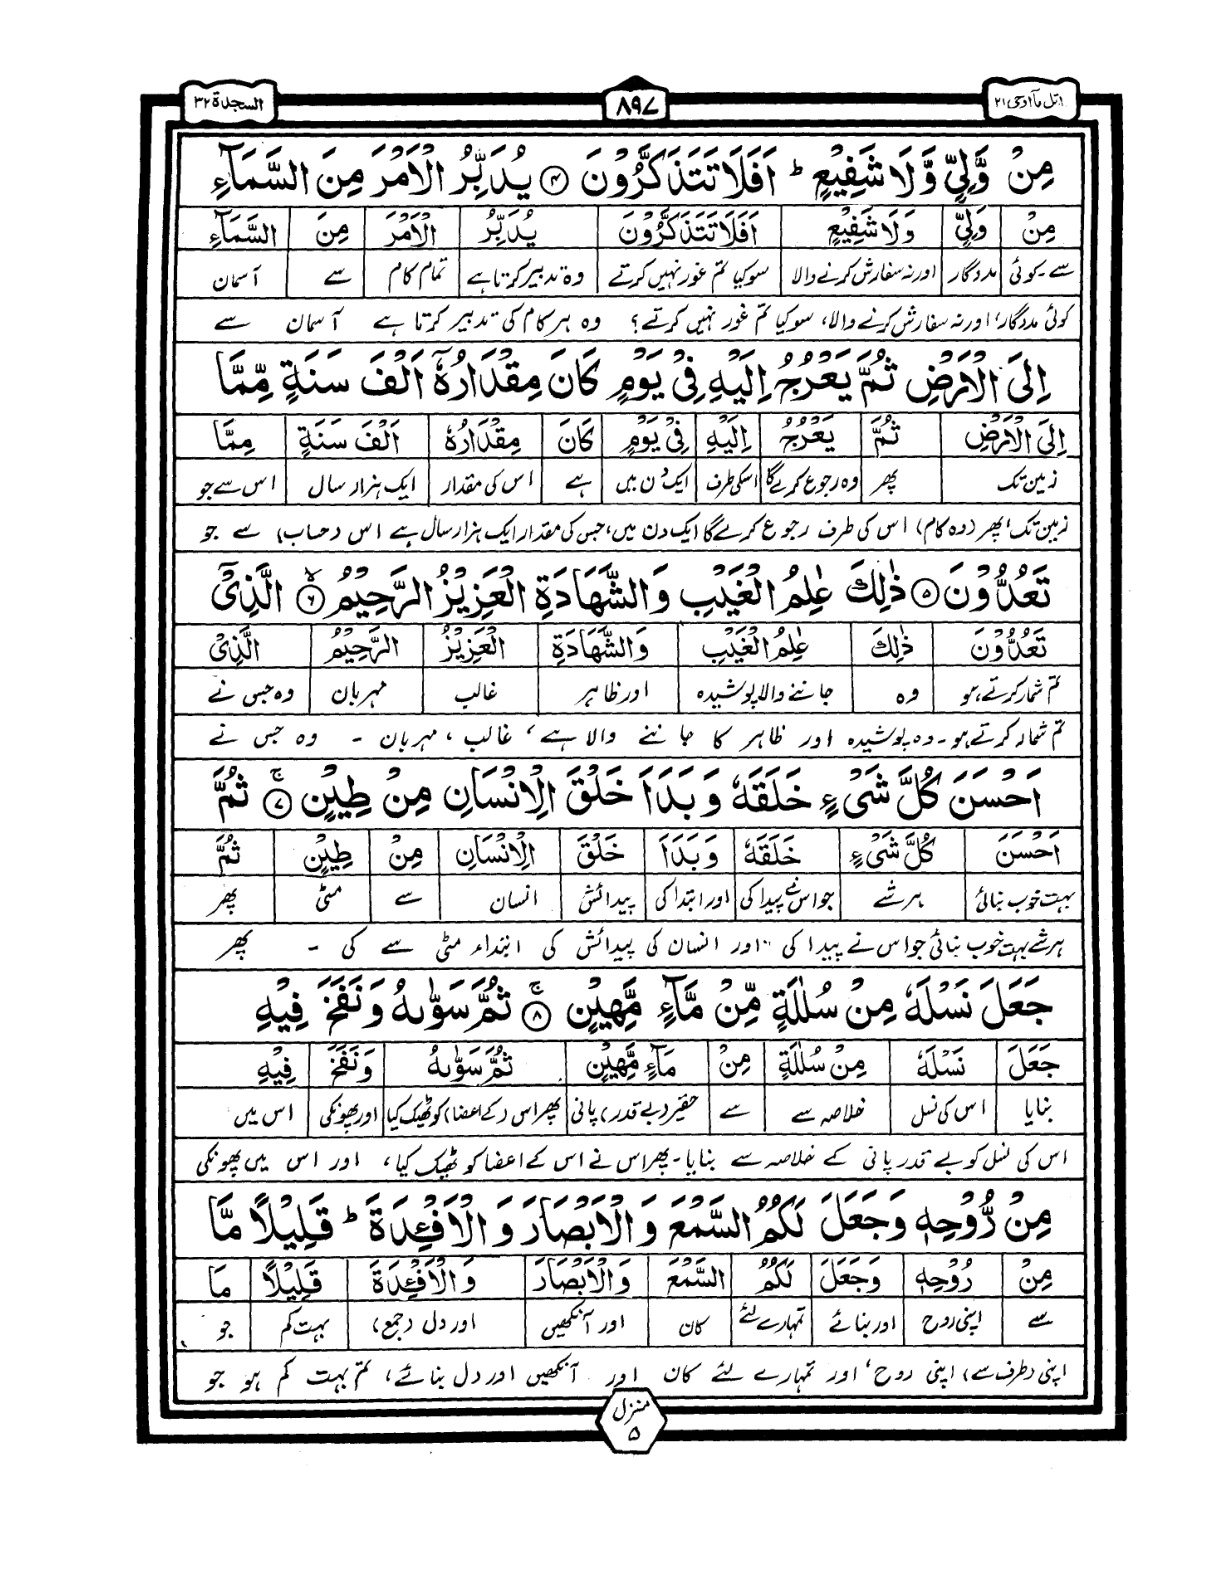 اتل مآ اوحی ۲۱ ۸۹۷ السجدة ۳۲
مِنْ وَّلِیٍّ وَّلَا شَفِیْعٍ ؕ اَفَلَا تَتَذَکَّرُوْنَ ۝۴ یُدَبِّرُ الْاَمْرَ مِنَ السَّمَآءِ
مِنْ وَلِیٍّ وَلَا شَفِیْعٍ اَفَلَا تَتَذَکَّرُوْنَ یُدَبِّرُ الْاَمْرَ مِنَ السَّمَآءِ
سے۔کوئی مددگار اور نہ سفارش کرنے والا سو کیا تم غور نہیں کرتے وہ تدبیر کرتا ہے تمام کام سے آسمان
کوئی مددگار، اور نہ سفارش کرنے والا، سو کیا تم غور نہیں کرتے؟ وہ ہر کام کی تدبیر کرتا ہے آسمان سے
اِلَی الْاَرْضِ ثُمَّ یَعْرُجُ اِلَیْهِ فِیْ یَوْمٍ کَانَ مِقْدَارُهٗۤ اَلْفَ سَنَةٍ مِّمَّا
اِلَی الْاَرْضِ ثُمَّ یَعْرُجُ اِلَیْهِ فِیْ یَوْمٍ کَانَ مِقْدَارُهٗ اَلْفَ سَنَةٍ مِمَّا
زمین تک پھر وہ رجوع کرے گا اسکی طرف ایک دن میں ہے اس کی مقدار ایک ہزار سال اس سے جو
زمین تک، پھر (وہ کام) اس کی طرف رجوع کرے گا ایک دن میں، جس کی مقدار ایک ہزار سال ہے اس (حساب) سے جو
تَعُدُّوْنَ ۝۵ ذٰلِکَ عٰلِمُ الْغَیْبِ وَالشَّهَادَةِ الْعَزِیْزُ الرَّحِیْمُ ۝۶ الَّذِیْۤ
تَعُدُّوْنَ ذٰلِکَ عٰلِمُ الْغَیْبِ وَالشَّهَادَةِ الْعَزِیْزُ الرَّحِیْمُ الَّذِیْ
تم شمار کرتے ہو وہ جاننے والا پوشیدہ اور ظاہر غالب مہربان وہ جس نے
تم شمار کرتے ہو۔ وہ پوشیدہ اور ظاہر کا جاننے والا ہے، غالب، مہربان ۔ وہ جس نے
اَحْسَنَ کُلَّ شَیْءٍ خَلَقَهٗ وَبَدَاَ خَلْقَ الْاِنْسَانِ مِنْ طِیْنٍ ۝۷ۚ ثُمَّ
اَحْسَنَ کُلَّ شَیْءٍ خَلَقَهٗ وَبَدَاَ خَلْقَ الْاِنْسَانِ مِنْ طِیْنٍ ثُمَّ
بہت خوب بنائی ہر شے جو اس نے پیدا کی اور ابتدا کی پیدائش انسان سے مٹی پھر
ہر شے بہت خوب بنائی جو اس نے پیدا کی، اور انسان کی پیدائش کی ابتداء مٹی سے کی ۔ پھر
جَعَلَ نَسْلَهٗ مِنْ سُلٰلَةٍ مِّنْ مَّآءٍ مَّهِیْنٍ ۝۸ۚ ثُمَّ سَوّٰىهُ وَنَفَخَ فِیْهِ
جَعَلَ نَسْلَهٗ مِنْ سُلٰلَةٍ مِنْ مَآءٍ مَّهِیْنٍ ثُمَّ سَوّٰىهُ وَنَفَخَ فِیْهِ
بنایا اس کی نسل خلاصہ سے سے حقیر (بے قدر) پانی پھر اس (کے اعضا) کو ٹھیک کیا اور پھونکی اس میں
اس کی نسل کو بے قدر پانی کے خلاصہ سے بنایا۔ پھر اس نے اس کے اعضا کو ٹھیک کیا، اور اس میں پھونکی
مِنْ رُّوْحِهٖ وَجَعَلَ لَکُمُ السَّمْعَ وَالْاَبْصَارَ وَالْاَفْـِٕدَةَ ؕ قَلِیْلًا مَّا
مِنْ رُوْحِهٖ وَجَعَلَ لَکُمُ السَّمْعَ وَالْاَبْصَارَ وَالْاَفْـِٕدَةَ قَلِیْلًا مَا
سے اپنی روح اور بنائے تمہارے لئے کان اور آنکھیں اور دل (جمع) بہت کم جو
اپنی (طرف سے) اپنی روح، اور تمہارے لئے کان اور آنکھیں اور دل بنائے، تم بہت کم ہو جو
منزل ۵